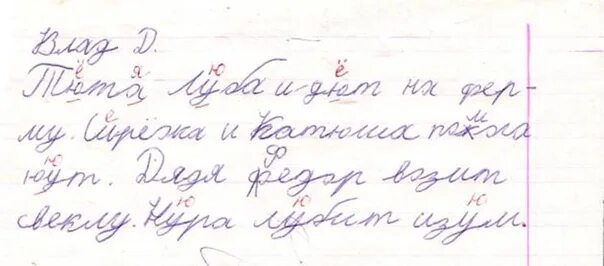 Влад Д.
Тюта Луба и дют на фер-
му. Сирёжа и Катюша помога
юут. Дядя Федор возит
свеклу. Нура лубит изум.